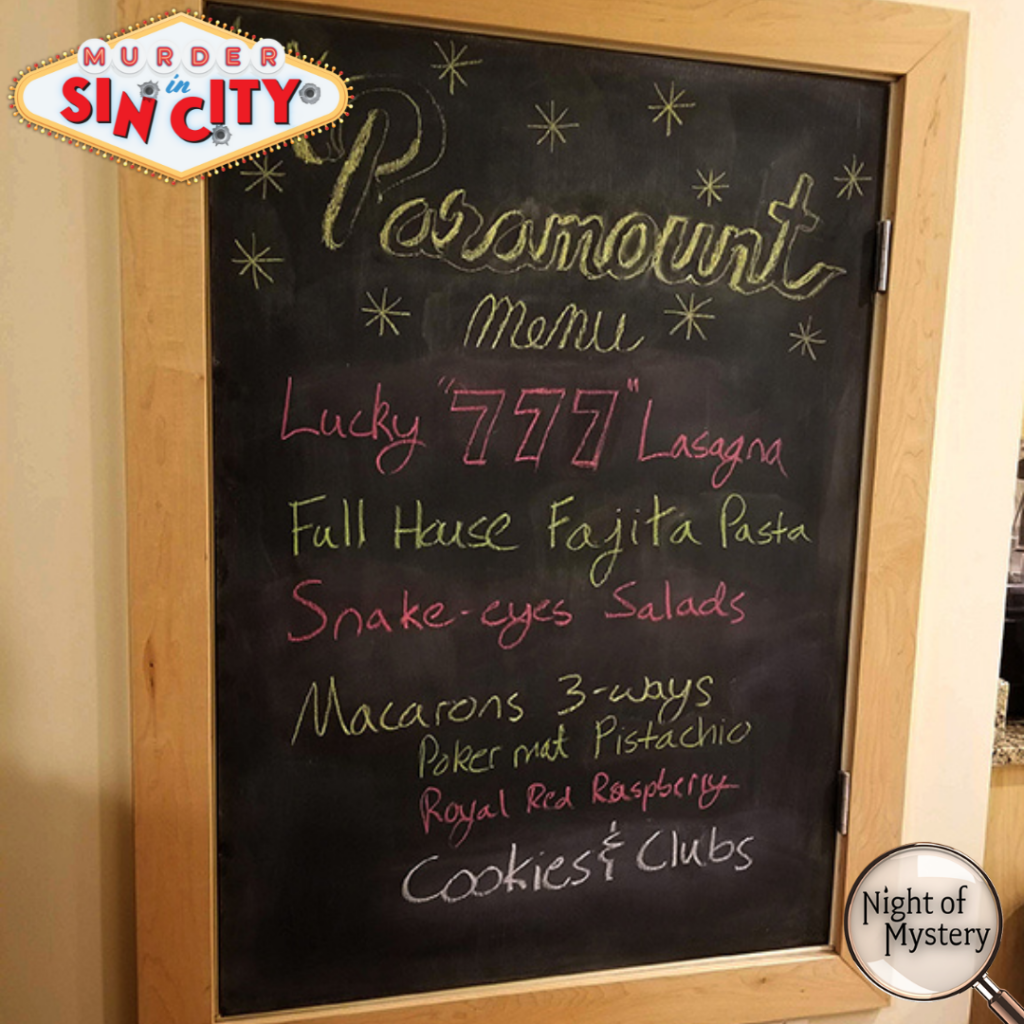 MURDER
in
SIN CITY
Paramount
Menu
Lucky "777" Lasagna
Full House Fajita Pasta
Snake-eyes Salads
Macarons 3-ways
Poker mat Pistachio
Royal Red Raspberry
Cookies & Clubs
Night of
Mystery